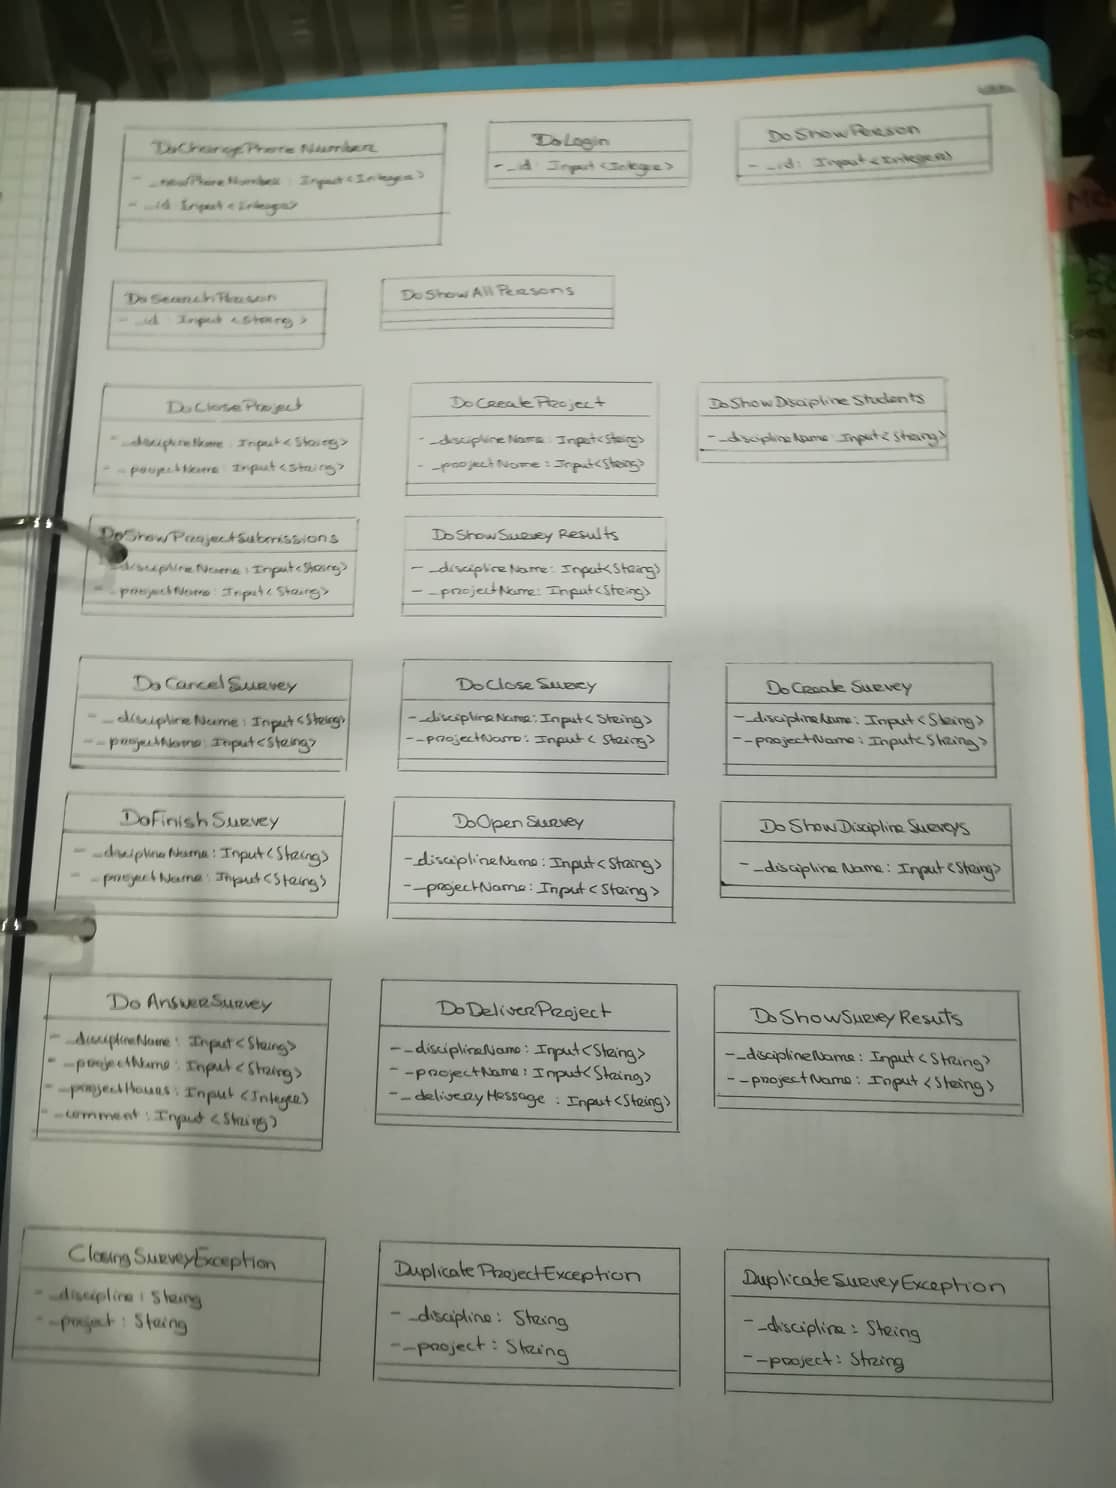 DoChangePhoneNumber
- _newPhoneNumber : Input<Integer>
- _id Input<Integer>
DoLogin
- _id : Input<Integer>
DoShowPerson
- _id : Input<Integer>
DoSearchPerson
- _id : Input <String>
DoShowAllPersons
DoCloseProject
- _disciplineName : Input<String>
- _projectName : Input<String>
DoCreateProject
- _disciplineName : Input<String>
- _projectName : Input<String>
DoShowDisciplineStudents
- _disciplineName : Input<String>
DoShowProjectSubmissions
_disciplineName : Input<String>
- _projectName : Input<String>
DoShowSurveyResults
- _disciplineName : Input<String>
- _projectName : Input<String>
DoCancelSurvey
- _disciplineName : Input<String>
- _projectName : Input<String>
DoCloseSurvey
- _disciplineName : Input<String>
- _projectName : Input<String>
DoCreateSurvey
- _disciplineName : Input<String>
- _projectName : Input<String>
DoFinishSurvey
- _disciplineName : Input<String>
- _projectName : Input<String>
DoOpenSurvey
- _disciplineName : Input<String>
- _projectName : Input<String>
DoShowDisciplineSurveys
- _disciplineName : Input<String>
DoAnswerSurvey
- _disciplineName : Input<String>
- _projectName : Input<String>
- _projectHours : Input<Integer>
- _comment : Input<String>
DoDeliverProject
- _disciplineName : Input<String>
- _projectName : Input<String>
- _deliveryMessage : Input<String>
DoShowSurveyResuts
- _disciplineName : Input<String>
- _projectName : Input<String>
ClosingSurveyException
- _discipline : String
- _project : String
DuplicateProjectException
- _discipline : String
- _project : String
DuplicateSurveyException
- _discipline : String
- _project : String